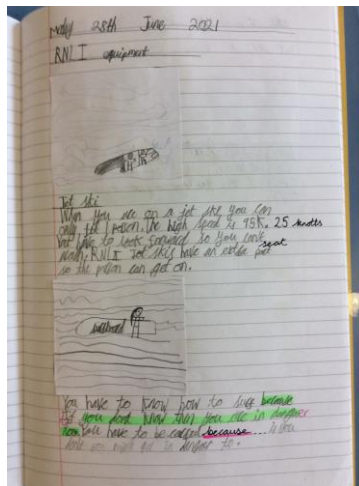 Monday 28th June 2021
RNLI equipment
Jet ski
When you are on a jet ski you can
only 1 person the high speed is 25 knotts
but have to look forward so you can't
RNLI Jet skis have an extra seat
so the person can get on.
surfboard
You have to know how to surf because
if you dont know that you are in danger
you have to be careful because... if you
dont you might get in danger to.